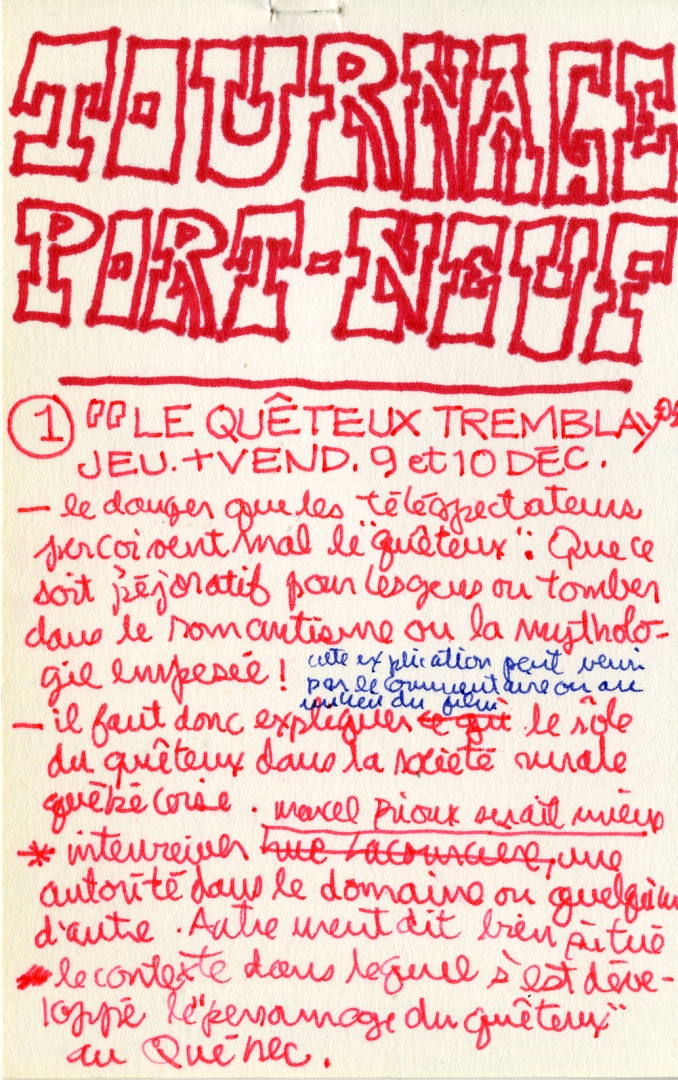 TOURNAGE
PORT-NEUF
1 "LE QUÊTEUX TREMBLAY"
JEU. + VEND. 9 et 10 DÉC.
— le danger que les téléspectateurs
perçoivent mal le "quêteux": Que ce
soit péjoratif pour les gens ou tomber
dans le romantisme ou la mytholo-
gie empesée !
cette explication peut venir
par le commentaire ou au
milieu du film
— il faut donc expliquer ce qui le rôle
du quêteux dans la société rurale
québécoise.
marcel Rioux serait mieux
* interwiever Luc Lacourcière, une
autorité dans le domaine ou quelqu'un
d'autre. Autrement dit bien situé
le contexte dans lequel s'est déve-
loppé le "personnage du quêteux"
au Québec.